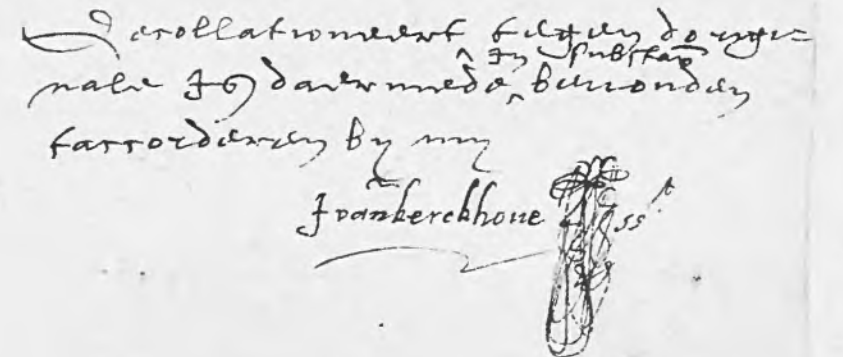 Gecollationeert tegen dorigi=
nale Is daermede ^ in substan̄ bevonden
taccorderen by my
J vankerckhove sst